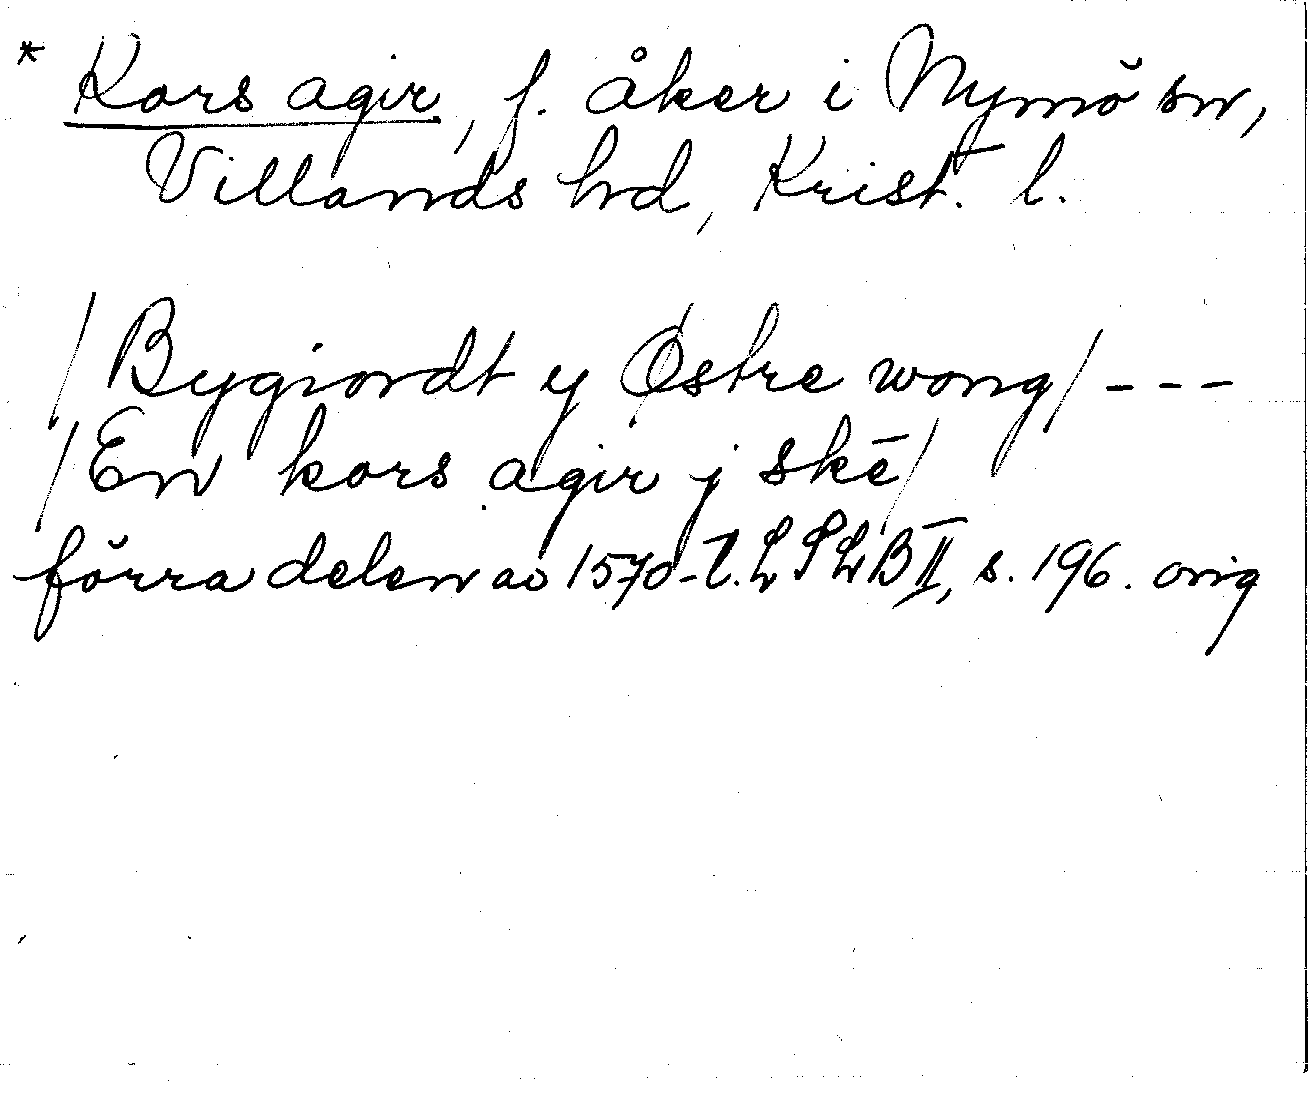 * Kors agir, f. åker i Nymö sn,
Villands hd, Krist. l.
/Bygiordt y Østre wong/ - - -
/En kors agir j skē/
förra delen av 1570-t. L S L B II, s. 196. orig